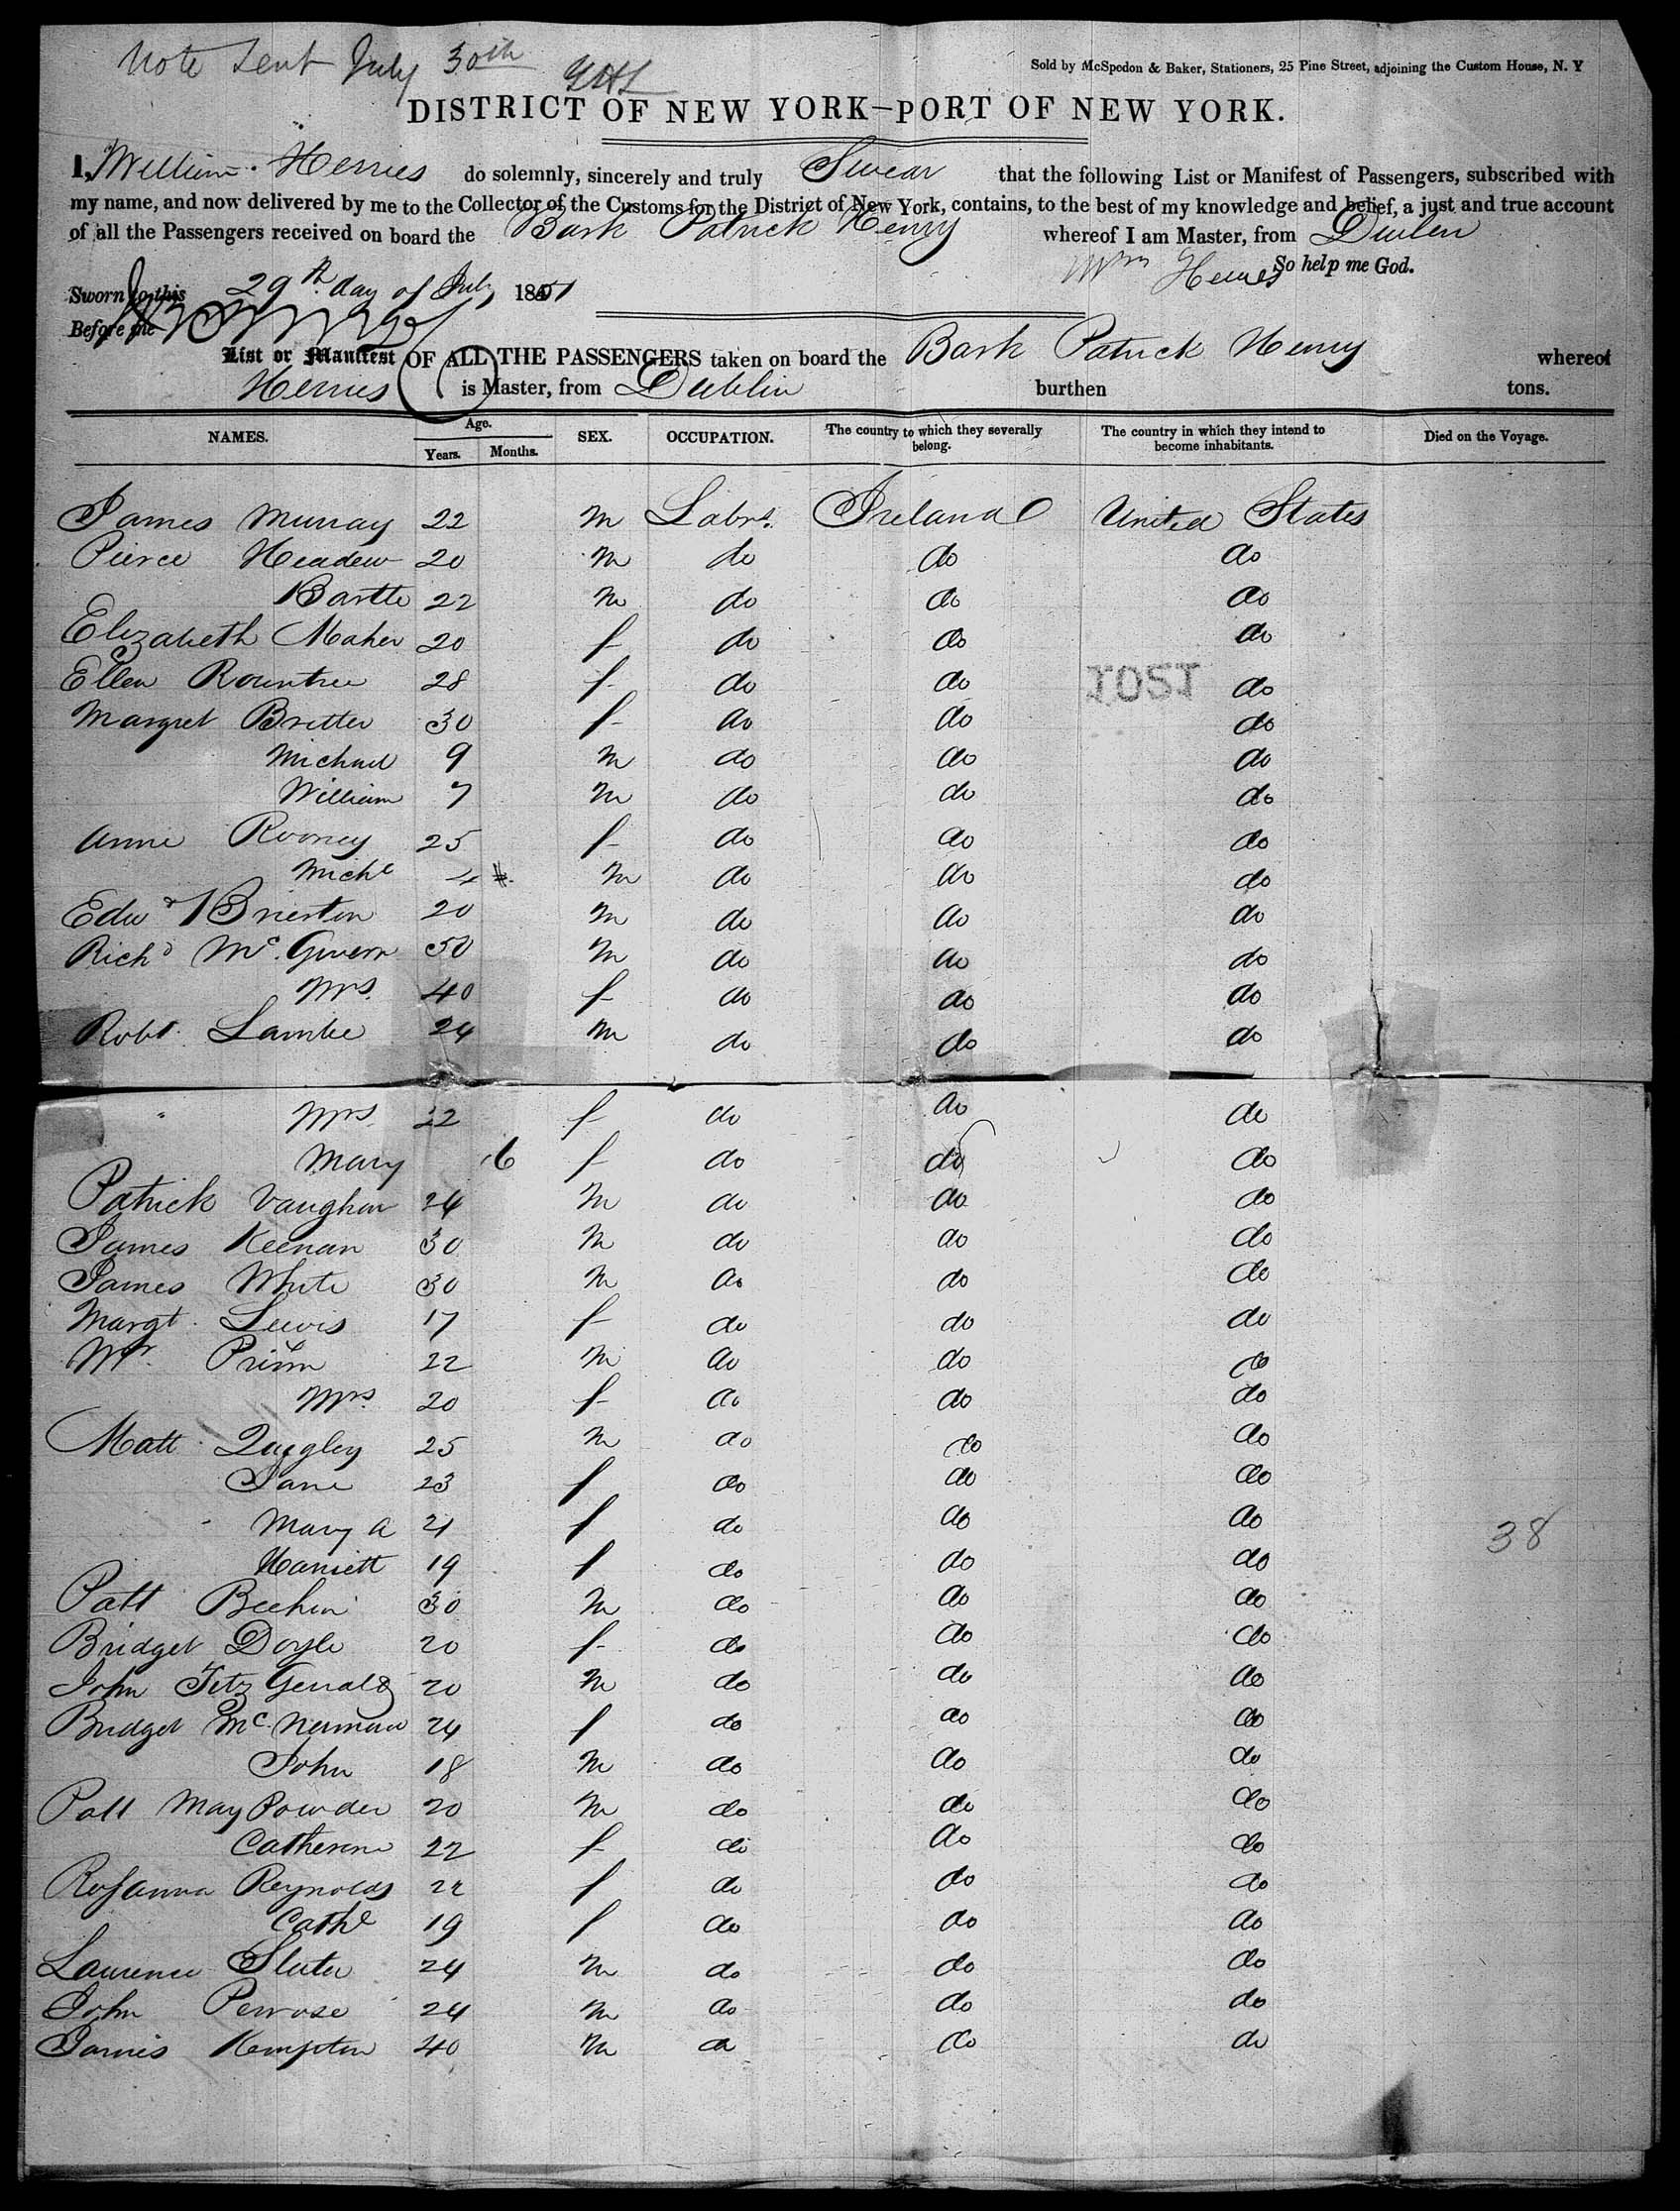 Note Sent July 30th
Sold by McSpedon & Baker, Stationers, 25 Pine Street, adjoining the Custom House, N. Y
DISTRICT OF NEW YORK—PORT OF NEW YORK.
I, William Herries do solemnly, sincerely and truly Swear that the following List or Manifest of Passengers, subscribed with
my name, and now delivered by me to the Collector of the Customs for the District of New York, contains, to the best of my knowledge and belief, a just and true account
of all the Passengers received on board the Bark Patrick Henry whereof I am Master, from Dublin
Wm Herries So help me God.
Sworn to this 29th day of July 1851
Before me
List or Manifest OF ALL THE PASSENGERS taken on board the Bark Patrick Henry whereof
Herries is Master, from Dublin burthen tons.
NAMES. Age. Years. Months. SEX. OCCUPATION. The country to which they severally belong. The country in which they intend to become inhabitants. Died on the Voyage.
James Murray 22 m Labrs. Ireland United States
Pierce Headew 20 m do do do
Bartle 22 m do do do
Elizabeth Maher 20 f do do do
Ellen Rountree 28 f do do do
Margret Britter 30 f do do do
Michael 9 m do do do
William 7 m do do do
Anne Rooney 25 f do do do
Michl 4 m do do do
Edwd Brierton 20 m do do do
Richd Mc.Givern 50 m do do do
Mrs. 40 f do do do
Robt. Lambe 24 m do do do
Mrs. 22 f do do do
Mary 6 f do do do
Patrick Vaughan 24 m do do do
James Keenan 30 m do do do
James White 30 m do do do
Margt. Lewis 17 f do do do
Mr. Prim 22 m do do do
Mrs. 20 f do do do
Matt Quigley 25 m do do do
Jane 23 f do do do
Mary A 21 f do do do
Harriett 19 f do do do
38
Patt Beehan 30 m do do do
Bridget Doyle 20 f do do do
John Fitz Gerald 20 m do do do
Bridget Mc.Nemara 24 f do do do
John 18 m do do do
Patt May Powder 20 m do do do
Catherine 22 f do do do
Rosanna Reynolds 22 f do do do
Cathe 19 f do do do
Laurence Sluter 24 m do do do
John Penrose 24 m do do do
James Kempton 40 m do do do